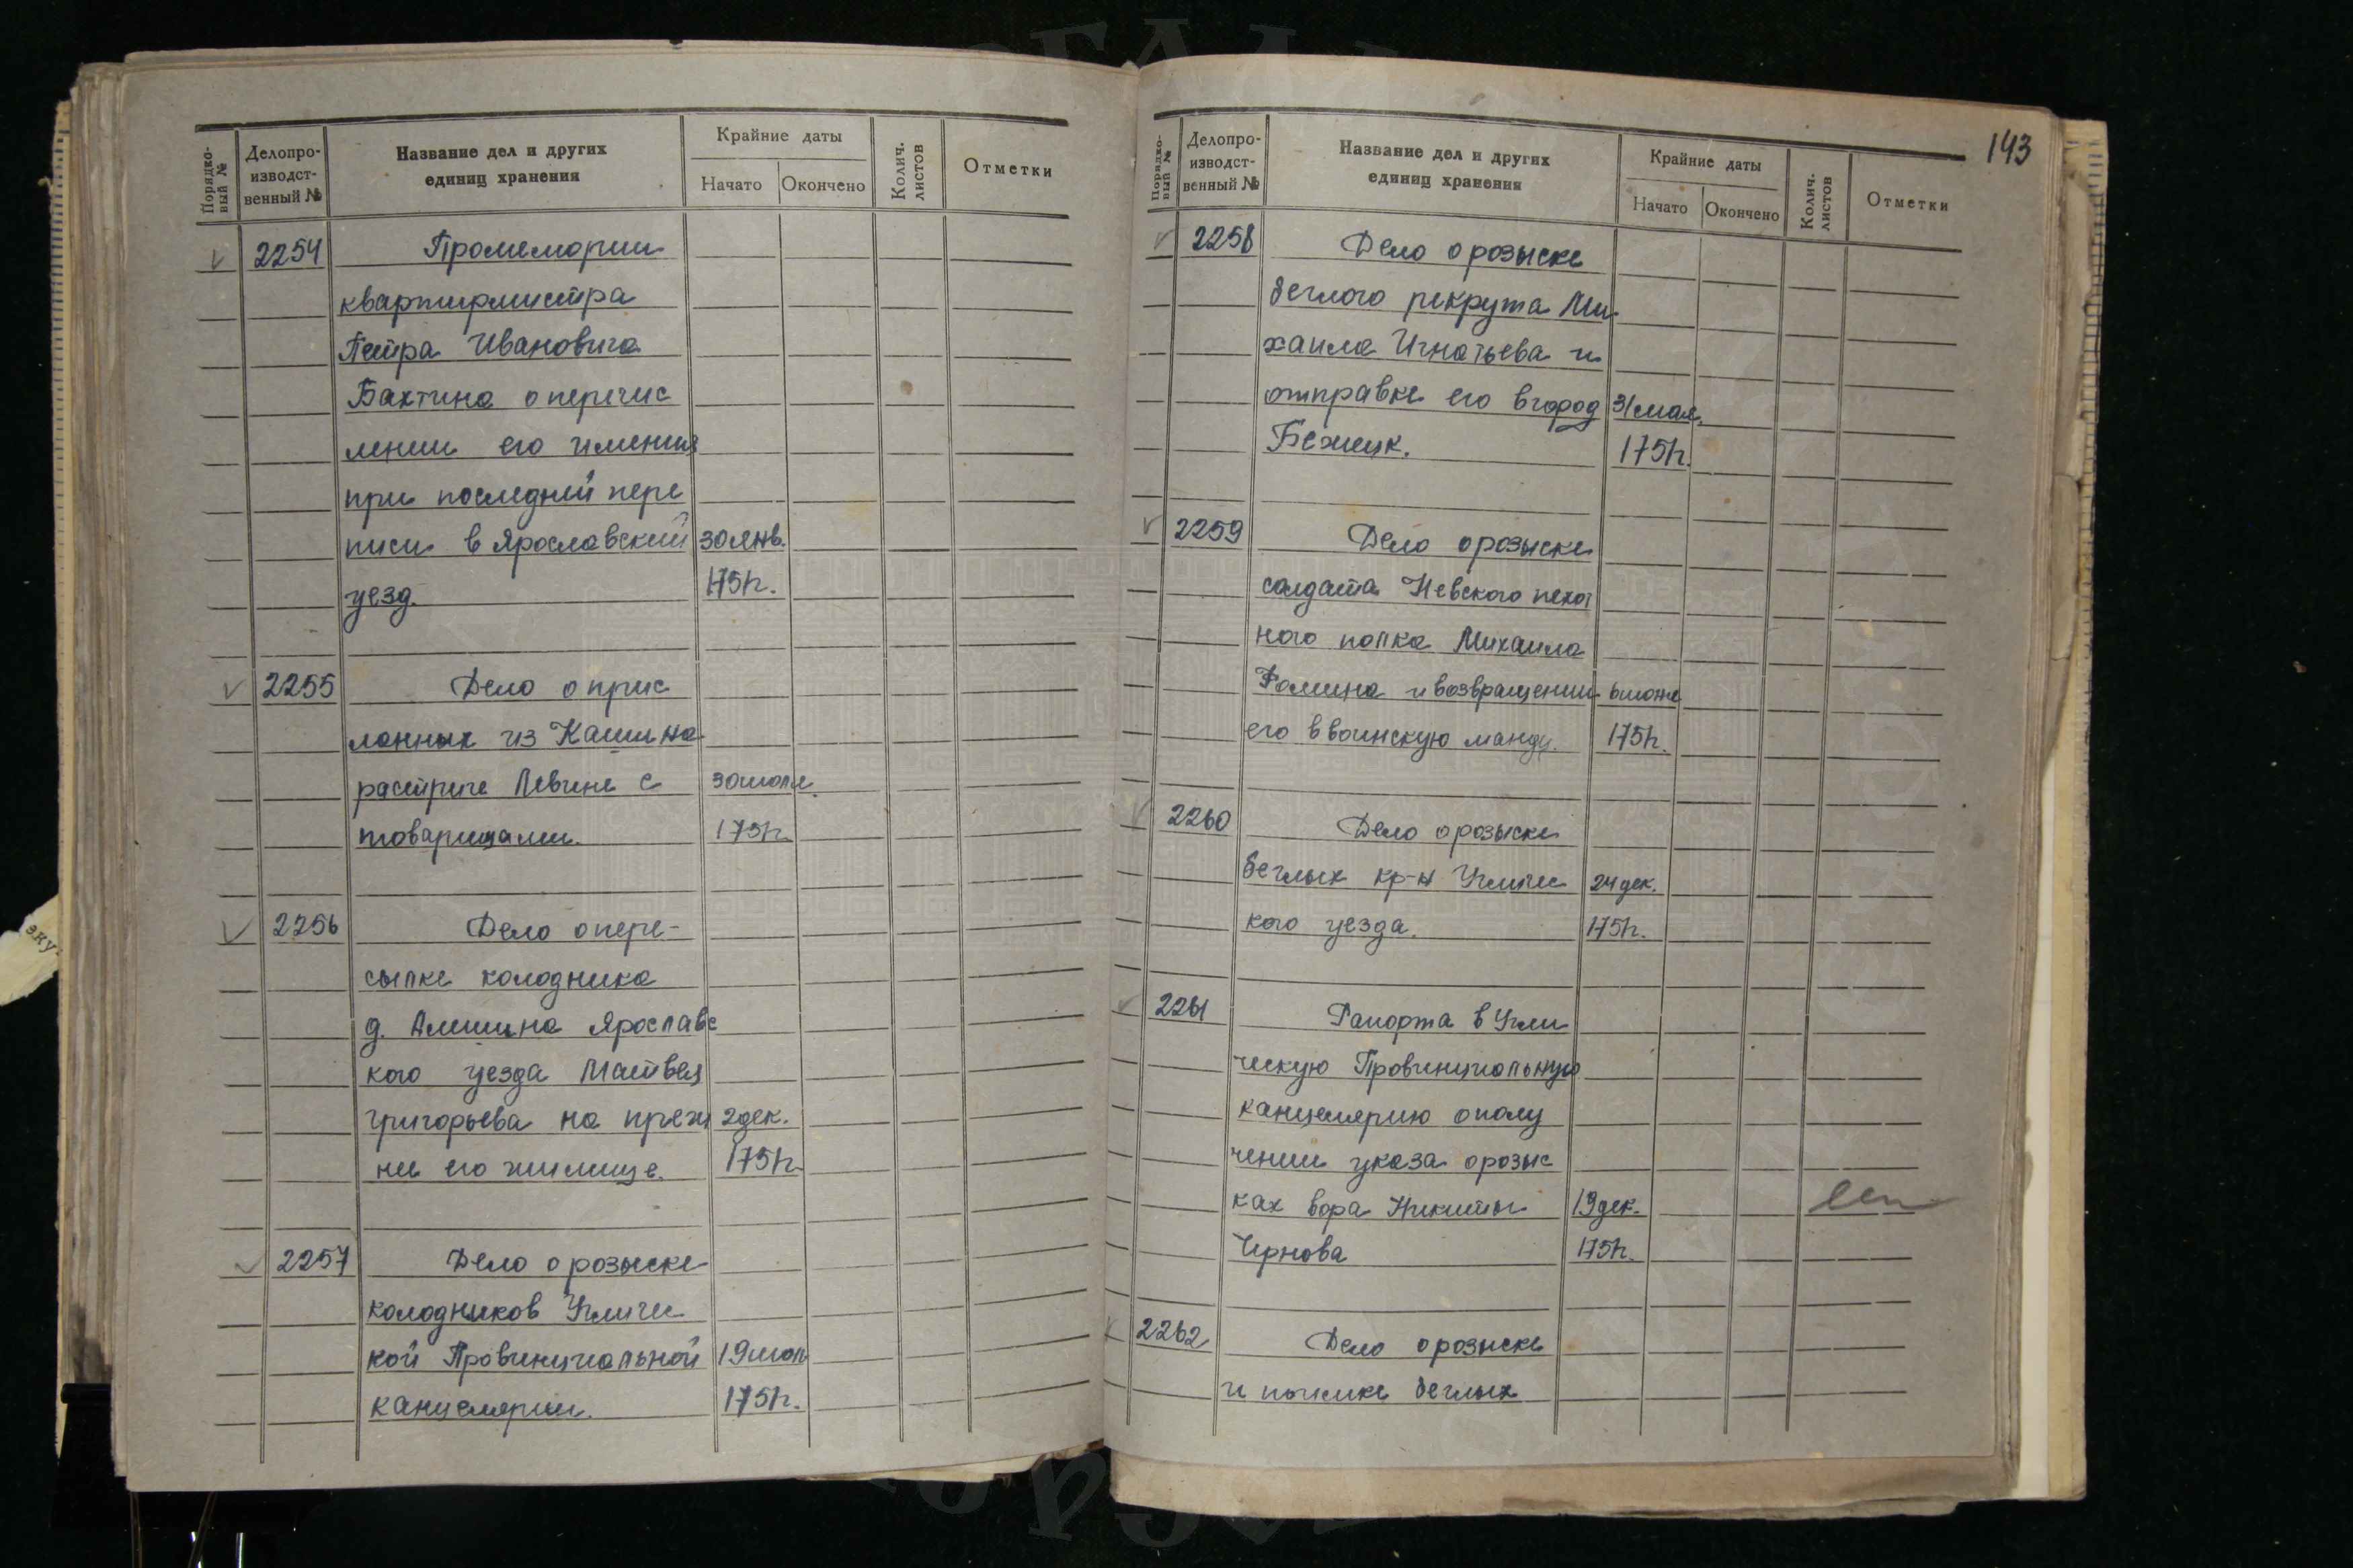 Порядко-
вый №
Делопро-
изводст-
венный №
Название дел и других
единиц хранения
Крайние даты
Начато
Окончено
Колич.
листов
Отметки
2254 Промемории
квартирмистра
Петра Ивановича
Бахтина о перечис
лении его имения
при последней пере
писи в Ярославский 30 янв.
уезд. 175 г.
2255 Дело о прис
ланных из Кашина
растриге Левине с 30 июля.
товарищами. 175 г.
2256 Дело о пере-
сылке колодника
д. Алешина Ярославс
кого уезда Матвея
Григорьева на преж 2 дек.
нее его жилище. 175 г.
2257 Дело о розыске
колодников Угличс
кой Провинциальной 19 июл
канцелярии. 175 г.
143
Порядко-
вый №
Делопро-
изводст-
венный №
Название дел и других
единиц хранения
Крайние даты
Начато
Окончено
Колич.
листов
Отметки
2258 Дело о розыске
беглого рекрута Ми
хаила Игнатьева и
отправке его в город 31 мая.
Бежецк. 175 г.
2259 Дело о розыске
солдата Невского пехот
ного полка Михаила
Фомина и возвращении
его в воинскую манду. 175 г.
2260 Дело о розыске
беглых кр-н Угличес 24 дек.
кого уезда. 175 г.
2261 Рапорта в Угли
ческую Провинциальную
канцелярию о полу
чении указа о розыс
ках вора Никиты 19 дек.
Чернова 175 г.
2262 Дело о розыске
и поимке беглых
эку